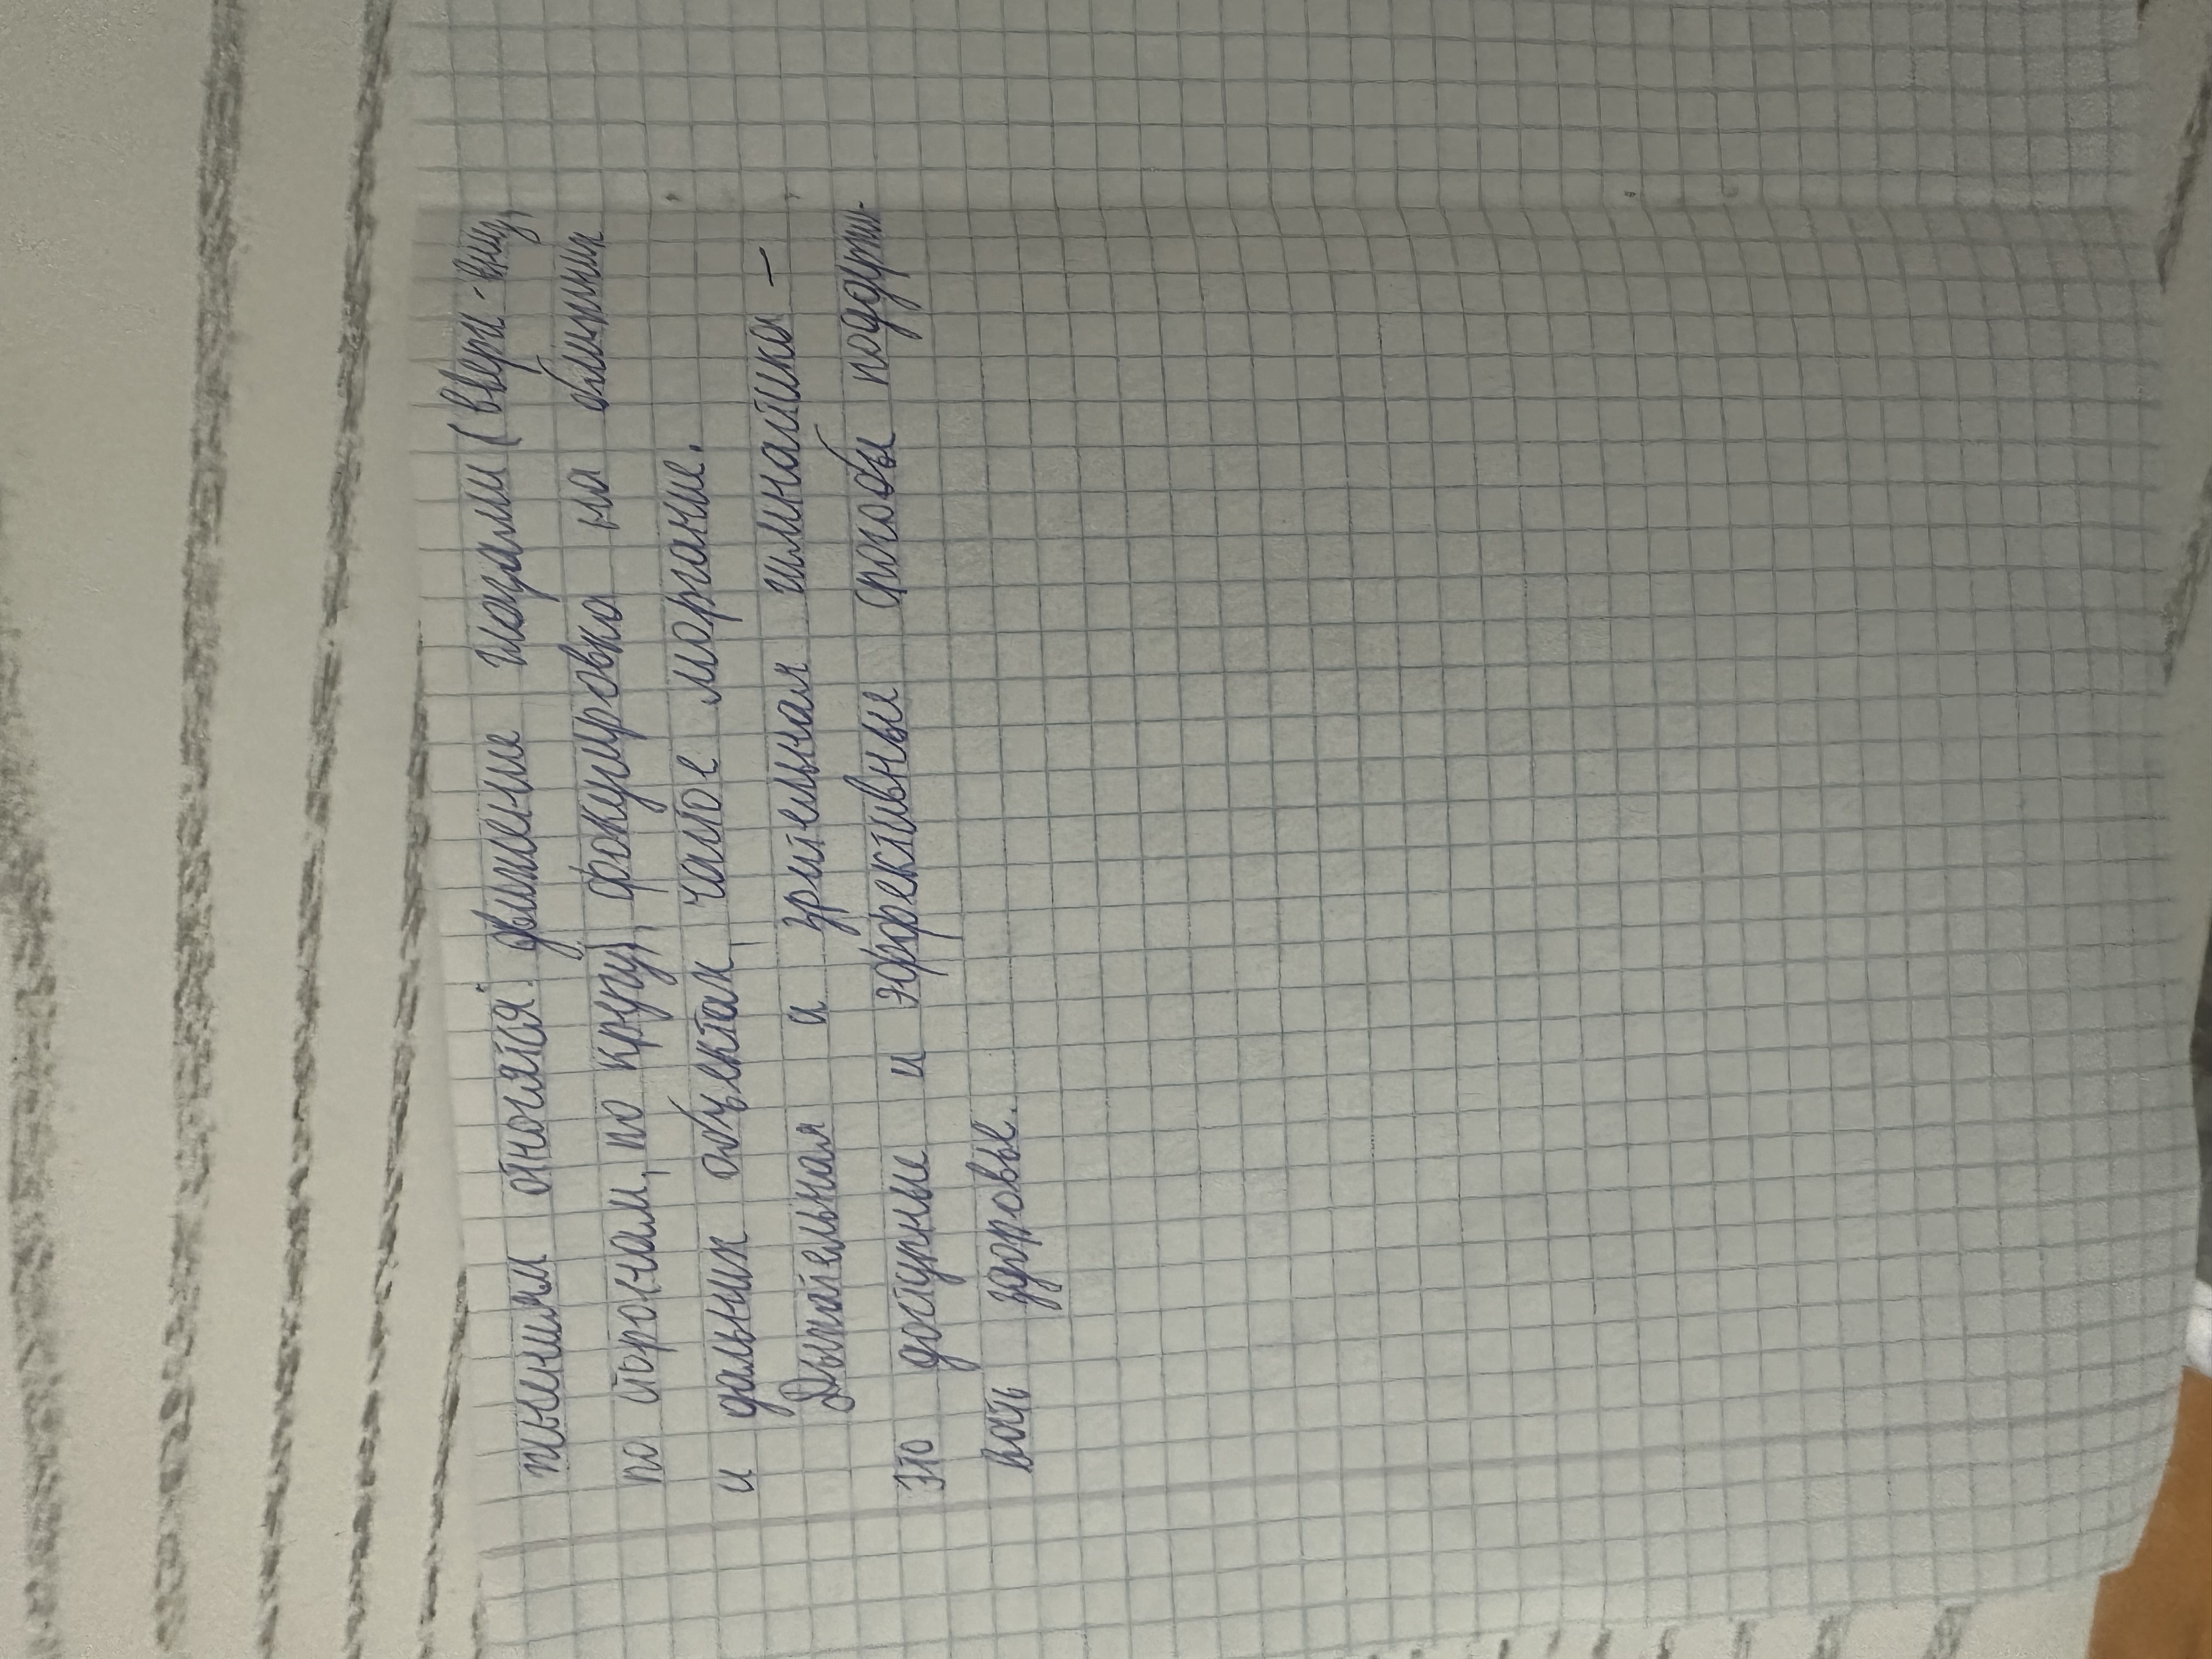 нениям относятся: движение глазами (вверх-вниз,
по сторонам, по кругу), фокусировка на ближних
и дальних объектах, частое моргание.
Дыхательная и зрительная гимнастика –
это доступные и эффективные способы поддержи-
вать здоровье.